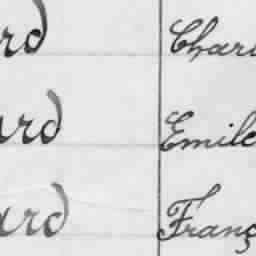 rd Char
ard Emile
ard Franç